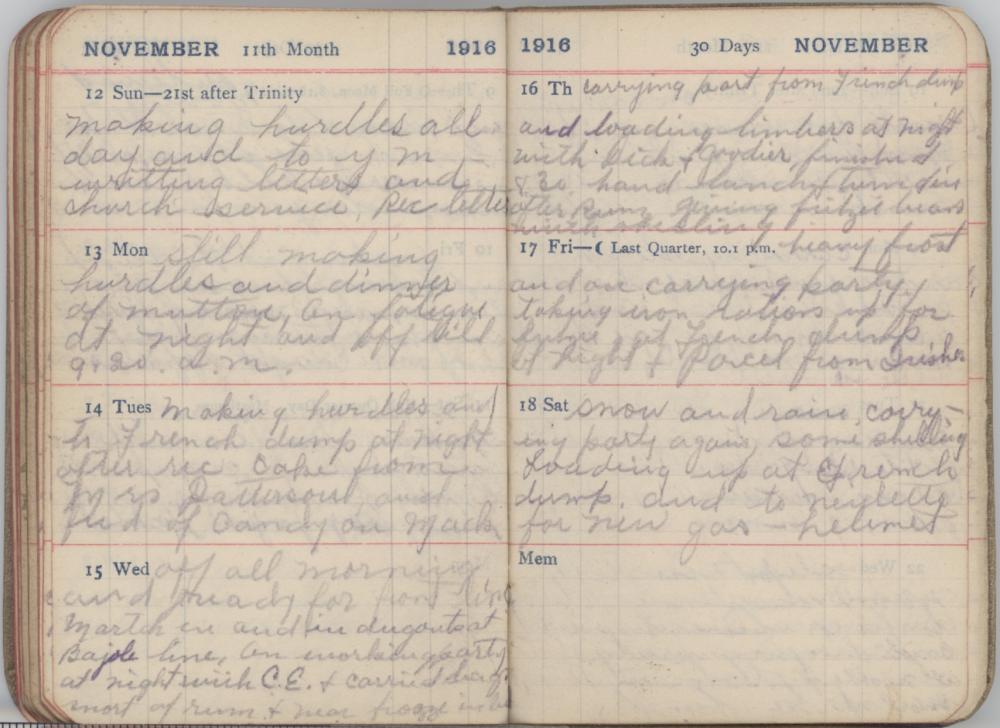 NOVEMBER 11th Month 1916
12 Sun—21st after Trinity
making hurdles all
day and to y m —
writting letters and
church service, Rec letter
13 Mon still making
hurdles and dinner
of mutton, on fatigue
at night and off till
9.20. a.m.
14 Tues making hurdles and
to French dump at night
after rec Cake from
Mrs Patterson and
feed of Candy on Mack
15 Wed off all morning
and ready for front line
March in and in dugouts at
line, on working party
at night with C.E. & carried
most of rum & near frooze
1916 30 Days NOVEMBER
16 Th carrying part from French dump
and loading limbers at night
with Dick & finished
8.30, hand lunch & turn in
after Rum giving fritzie
with
17 Fri—☾ Last Quarter, 10.1 p.m. heavy frost
and on carrying party,
taking iron rations up for
at French dump
at night & Parcel from
18 Sat snow and rain carry-
ing party again, some shelling
Loading up at French
dump. and to neglette
for new gas - helmet
Mem